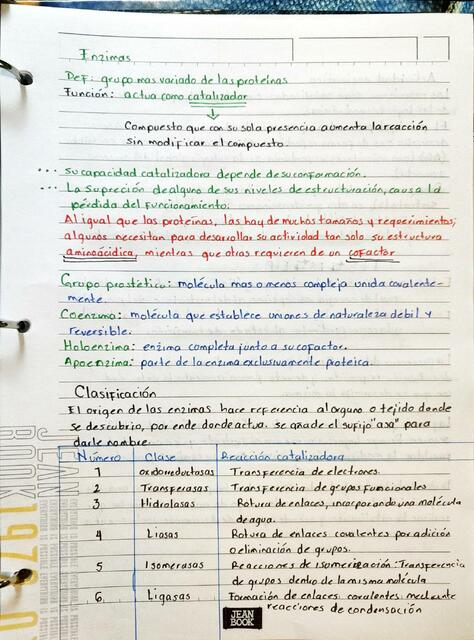 Enzimas
Def: grupo mas variado de las proteínas
Función: actua como catalizador
Compuesto que con su sola presencia aumenta la reacción
sin modificar el compuesto.
... su capacidad catalizadora depende de su conformación.
... La supreción de alguno de sus niveles de estructuración, causa la
pérdida del funcionamiento.
Al igual que las proteínas, las hay de muchos tamaños y requerimientos;
algunos necesitan para desarrollar su actividad tan solo su estructura
aminoácidica, mientras que otras requieren de un cofactor
Grupo prostético: molécula mas o menos compleja unida covalente-
mente.
Coenzima: molécula que establece uniones de naturaleza debil y
reversible.
Holoenzima: enzima completa junto a su cofactor.
Apoenzima: parte de la enzima exclusivamente proteica.
Clasificación
El origen de las enzimas hace referencia al organo o tejido donde
se descubrio, por ende donde actua. se añade el sufijo "asa" para
darle nombre.
Número Clase Reacción catalizadora
1 oxidoreductasas Transferencia de electrones.
2 Transferasas Transferencia de grupos funcionales
3 Hidrolasas Rotura de enlaces, incorporando una molécula
de agua.
4 Liasas Rotura de enlaces covalentes por adición
o eliminación de grupos.
5 Isomerasas Reacciones de isomerización: Transferencia
de grupos dentro de la misma molécula
6 Ligasas Formación de enlaces covalentes mediante
reacciones de condensación
JEAN
BOOK
JEAN
BOOK
1978